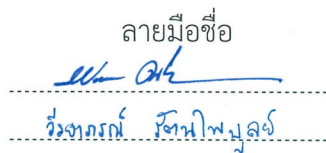 ลายมือชื่อ
วีรยาภรณ์ รัตนไพบูลย์